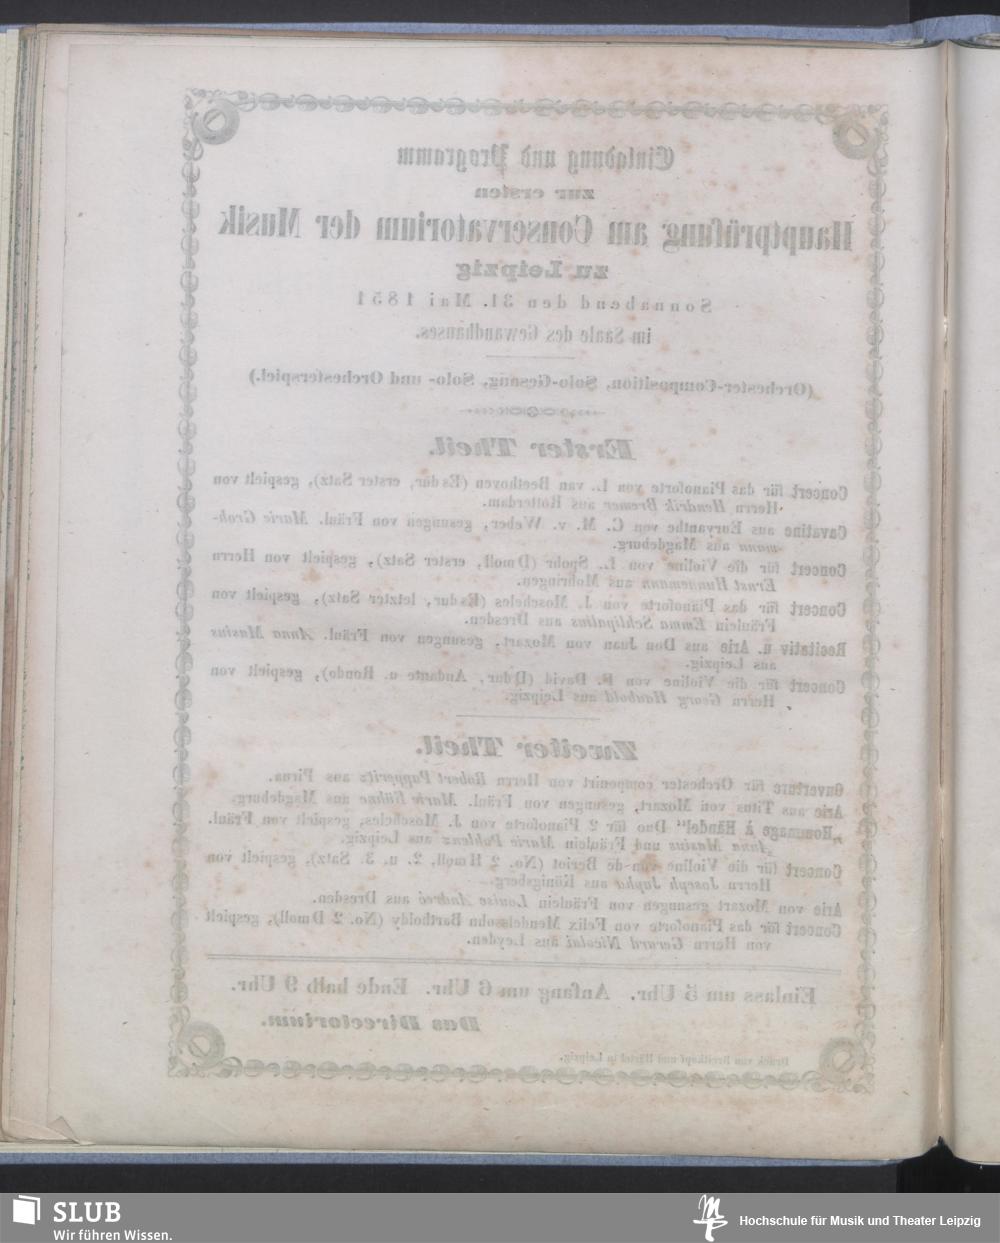 Einladung und Programm
zur ersten
Hauptprüfung am Conservatorium der Musik
zu Leipzig
Sonnabend den 31. Mai 1851
im Saale des Gewandhauses.
(Orchester-Composition, Solo-Gesang, Solo- und Orchesterspiel.)
Erster Theil.
Concert für das Pianoforte von L. van Beethoven (Es dur, erster Satz), gespielt von
Herrn Hendrik Bremer aus Rotterdam.
Cavatine aus Euryanthe von C. M. v. Weber, gesungen von Fräul. Marie Groh-
mann aus Magdeburg.
Concert für die Violine von L. Spohr (D moll, erster Satz), gespielt von Herrn
Ernst Hunnemann aus Mohringen.
Concert für das Pianoforte von J. Moscheles (Es dur, letzter Satz), gespielt von
Fräulein Emma Schlipalius aus Dresden.
Recitativ u. Arie aus Don Juan von Mozart, gesungen von Fräul. Anna Masius
aus Leipzig.
Concert für die Violine von F. David (D dur, Andante u. Rondo), gespielt von
Herrn Georg Haubold aus Leipzig.
Zweiter Theil.
Ouverture für Orchester componirt von Herrn Robert Papperitz aus Pirna.
Arie aus Titus von Mozart, gesungen von Fräul. Marie Kühne aus Magdeburg.
„Hommage à Händel“ Duo für 2 Pianoforte von J. Moscheles, gespielt von Fräul.
Anna Masius und Fräulein Marie Pohlenz aus Leipzig.
Concert für die Violine von de Beriot (No. 2 H moll, 2. u. 3. Satz), gespielt von
Herrn Joseph Japha aus Königsberg.
Arie von Mozart gesungen von Fräulein Louise André aus Dresden.
Concert für das Pianoforte von Felix Mendelssohn Bartholdy (No. 2 D moll), gespielt
von Herrn Gerard Nicolai aus Leyden.
Einlass um 5 Uhr. Anfang um 6 Uhr. Ende halb 9 Uhr.
Das Directorium.
Druck von Breitkopf und Härtel in Leipzig.
SLUB
Wir führen Wissen.
Hochschule für Musik und Theater Leipzig